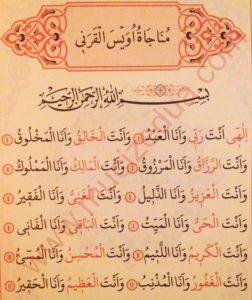 مُنَاجَاةُ اُوَيْسِ الْقَرَنِي
بِسْمِ اللّٰهِ الرَّحْمٰنِ الرَّحِيمِ
اِلٰهِى اَنْتَ رَبِّى وَاَنَا الْعَبْدُ ۝ وَاَنْتَ الْخَالِقُ وَاَنَا الْمَخْلُوقُ ۝
وَاَنْتَ الرَّزَّاقُ وَاَنَا الْمَرْزُوقُ ۝ وَاَنْتَ الْمَالِكُ وَاَنَا الْمَمْلُوكُ ۝
وَاَنْتَ الْعَزِيزُ وَاَنَا الذَّلِيلُ ۝ وَاَنْتَ الْغَنِىُّ وَاَنَا الْفَقِيرُ ۝
وَاَنْتَ الْحَىُّ وَاَنَا الْمَيِّتُ ۝ وَاَنْتَ الْبَاقِى وَاَنَا الْفَانِى ۝
وَاَنْتَ الْكَرِيمُ وَاَنَا اللَّئِيمُ ۝ وَاَنْتَ الْمُحْسِنُ وَاَنَا الْمُسِىءُ ۝
وَاَنْتَ الْغَفُورُ وَاَنَا الْمُذْنِبُ ۝ وَاَنْتَ الْعَظِيمُ وَاَنَا الْحَقِيرُ ۝